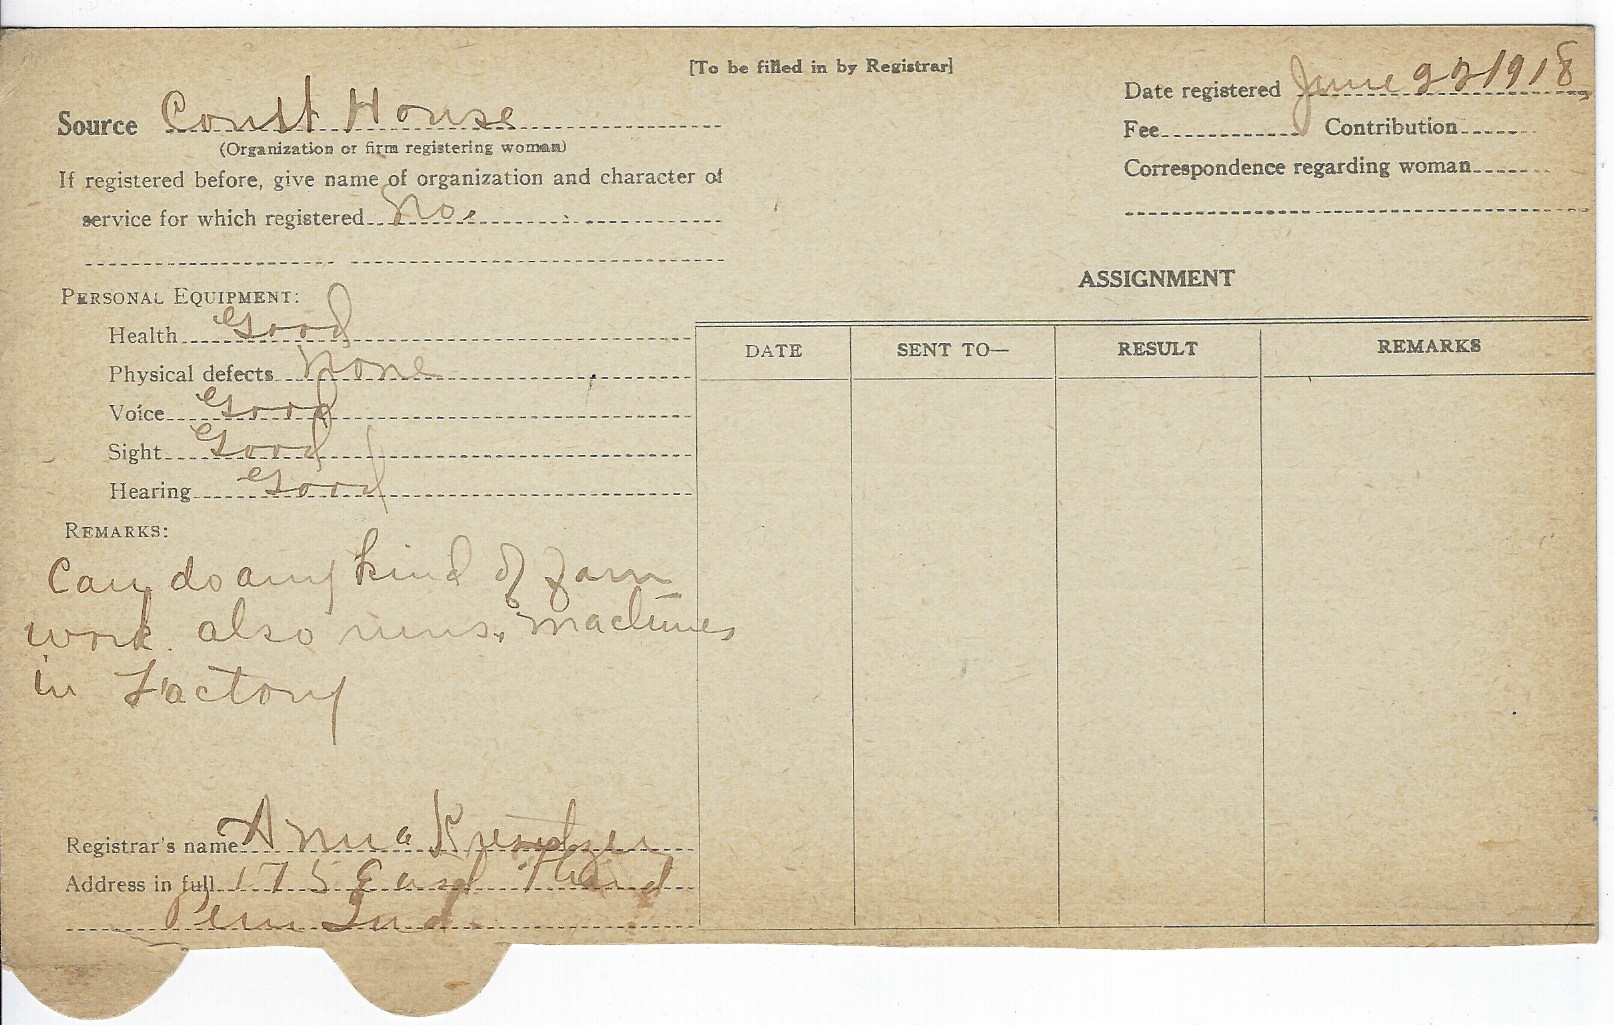 [To be filled in by Registrar]
Source Court House
(Organization or firm registering woman)
If registered before, give name of organization and character of
service for which registered No.
Date registered June 22 1918
Fee Contribution
Correspondence regarding woman
PERSONAL EQUIPMENT:
Health Good
Physical defects None
Voice Good
Sight Good
Hearing Good
REMARKS:
Can do any kind of farm
work. also runs machines
in Factory
Registrar's name Anna Kreutzer
Address in full 175 East Third
Peru Ind.
ASSIGNMENT
DATE SENT TO— RESULT REMARKS